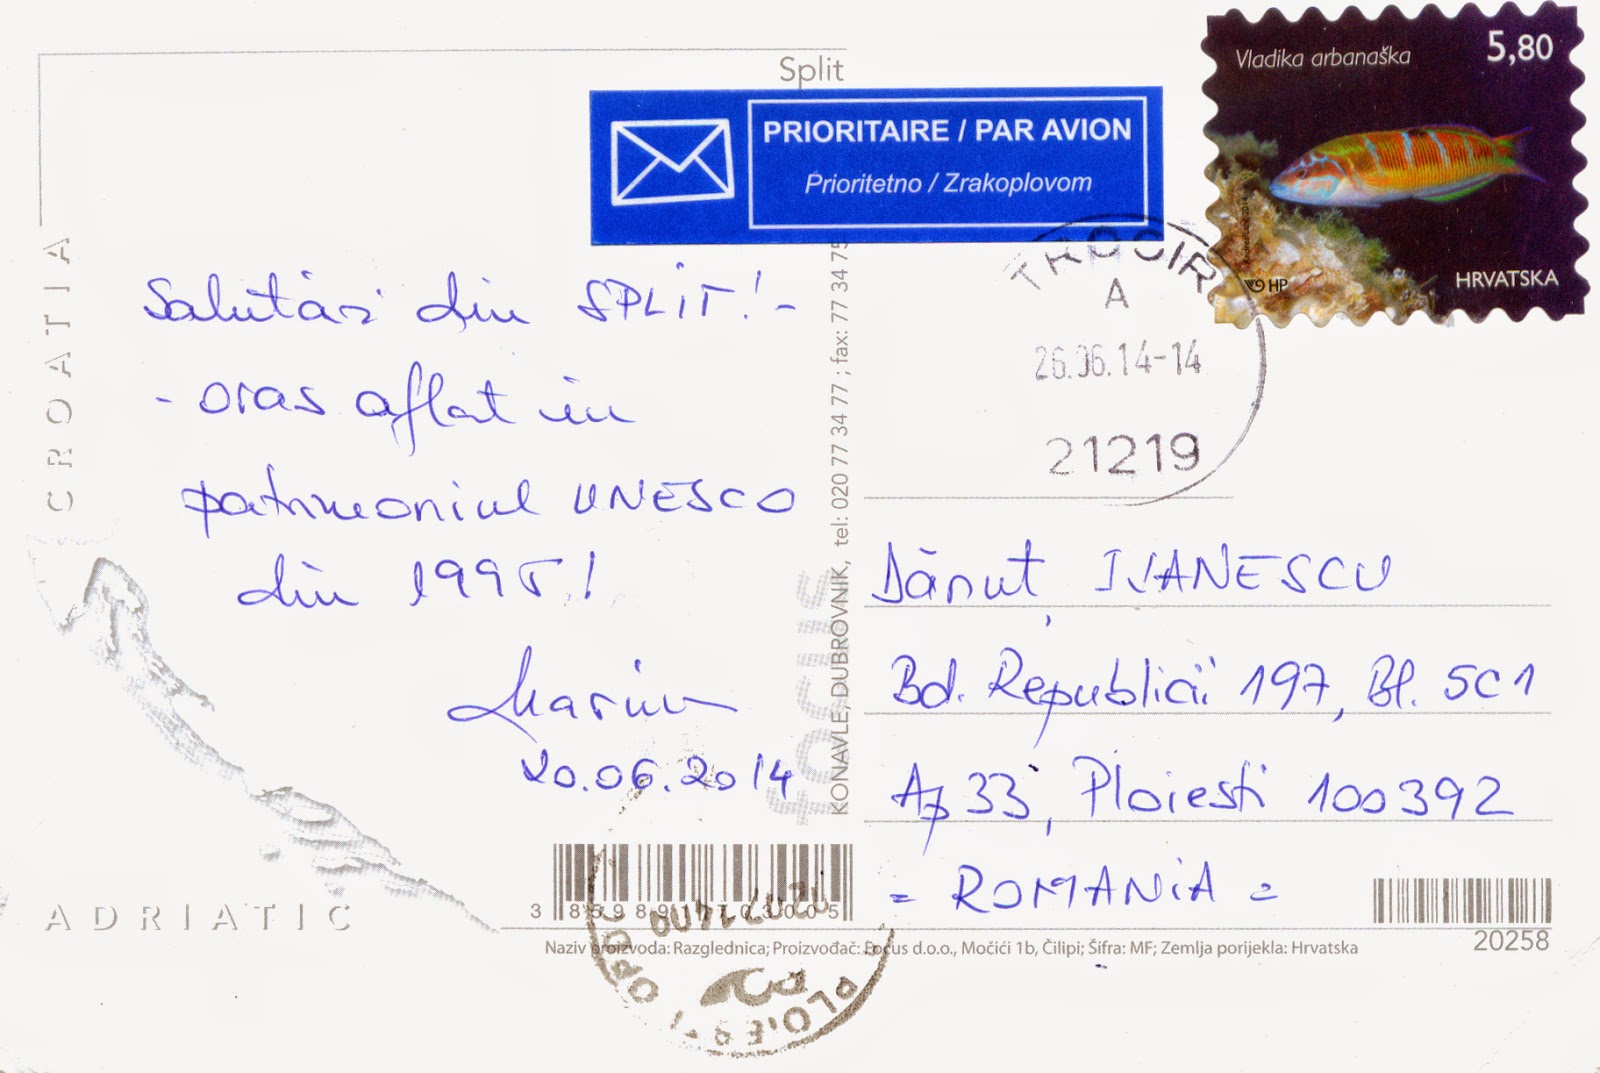 Split
PRIORITAIRE / PAR AVION
Prioritetno / Zrakoplovom
Vladika arbanaška
5,80
HP
HRVATSKA
TROGIR
A
26.06.14-14
21219
CROATIA
Salutări din SPLIT! -
- oras aflat in
patrimoniul UNESCO
din 1995!
Marius
20.06.2014
ADRIATIC
focus
KONAVLE, DUBROVNIK, tel: 020 77 34 77 ; fax: 77 34 75
Dănuț IVANESCU
Bd. Republicii 197, Bl. 5C1
Ap 33, Ploiesti 100392
= ROMANIA =
3 859891703005
20258
Naziv proizvoda: Razglednica; Proizvođač: Focus d.o.o., Močići 1b, Čilipi; Šifra: MF; Zemlja porijekla: Hrvatska